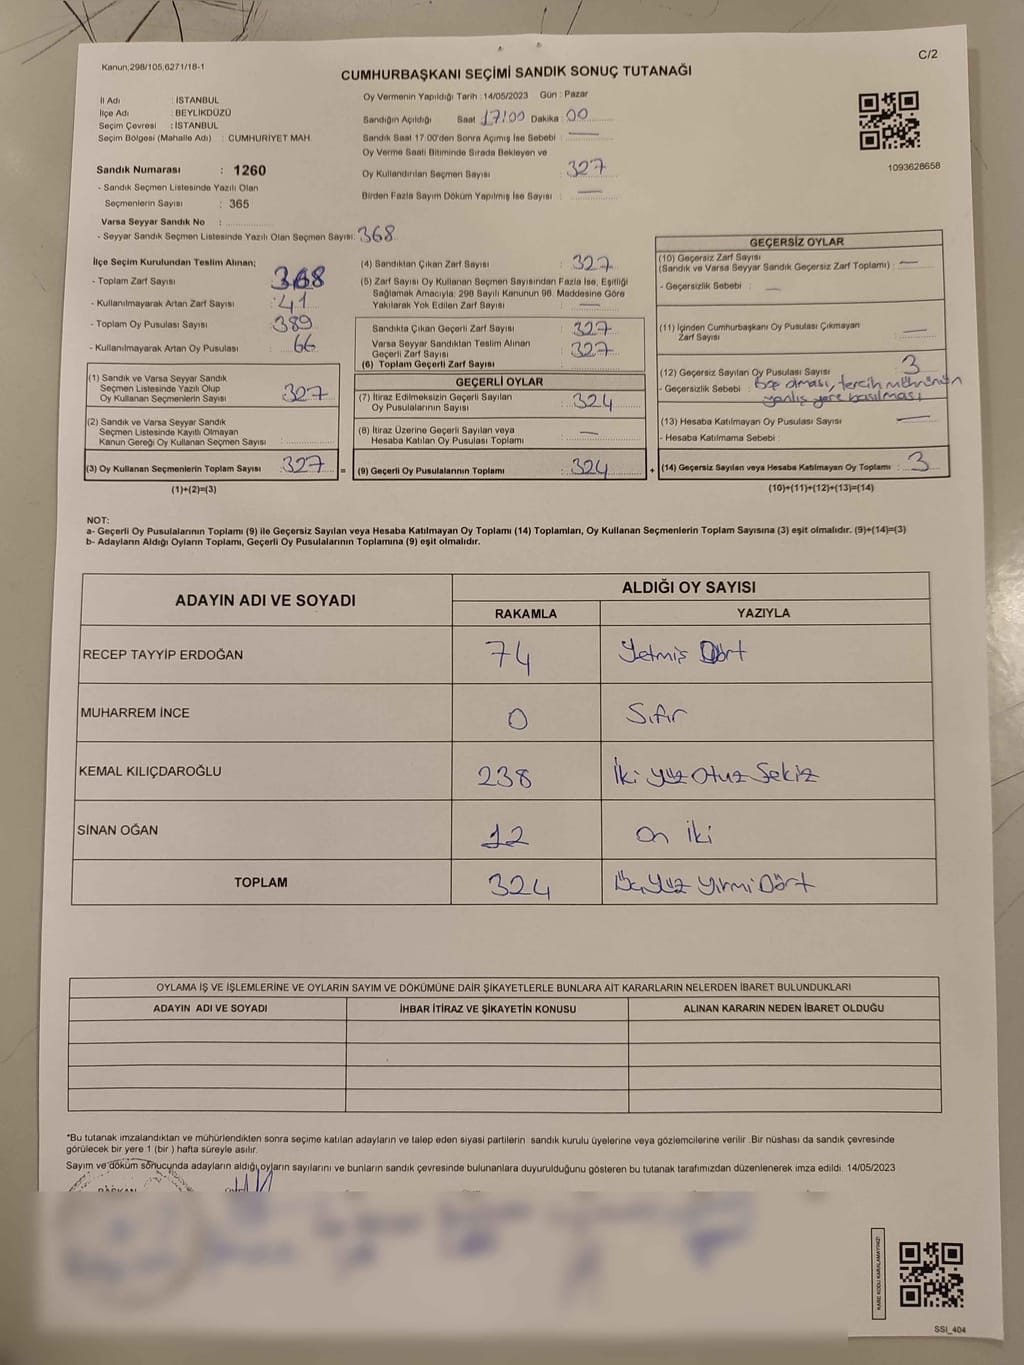 Kanun,298/105,6271/18-1
C/2
CUMHURBAŞKANI SEÇİMİ SANDIK SONUÇ TUTANAĞI
İl Adı : İSTANBUL
İlçe Adı : BEYLİKDÜZÜ
Seçim Çevresi : İSTANBUL
Seçim Bölgesi (Mahalle Adı) : CUMHURİYET MAH.
Sandık Numarası : 1260
- Sandık Seçmen Listesinde Yazılı Olan
Seçmenlerin Sayısı : 365
Varsa Seyyar Sandık No :
- Seyyar Sandık Seçmen Listesinde Yazılı Olan Seçmen Sayısı: 368
Oy Vermenin Yapıldığı Tarih : 14/05/2023 Gün : Pazar
Sandığın Açıldığı Saat 17:00 Dakika : 00
Sandık Saat 17.00'den Sonra Açılmış İse Sebebi : —
Oy Verme Saati Bitiminde Sırada Bekleyen ve
Oy Kullandırılan Seçmen Sayısı : 327
Birden Fazla Sayım Döküm Yapılmış İse Sayısı : —
1093628658
İlçe Seçim Kurulundan Teslim Alınan;
- Toplam Zarf Sayısı : 368
- Kullanılmayarak Artan Zarf Sayısı : 41
- Toplam Oy Pusulası Sayısı : 389
- Kullanılmayarak Artan Oy Pusulası : 66
(1) Sandık ve Varsa Seyyar Sandık
Seçmen Listesinde Yazılı Olup
Oy Kullanan Seçmenlerin Sayısı : 327
(2) Sandık ve Varsa Seyyar Sandık
Seçmen Listesinde Kayıtlı Olmayan
Kanun Gereği Oy Kullanan Seçmen Sayısı :
(3) Oy Kullanan Seçmenlerin Toplam Sayısı : 327 =
(1)+(2)=(3)
(4) Sandıktan Çıkan Zarf Sayısı : 327
(5) Zarf Sayısı Oy Kullanan Seçmen Sayısından Fazla İse, Eşitliği
Sağlamak Amacıyla; 298 Sayılı Kanunun 98. Maddesine Göre
Yakılarak Yok Edilen Zarf Sayısı : —
Sandıkta Çıkan Geçerli Zarf Sayısı : 327
Varsa Seyyar Sandıktan Teslim Alınan
Geçerli Zarf Sayısı : 327
(6) Toplam Geçerli Zarf Sayısı :
GEÇERLİ OYLAR
(7) İtiraz Edilmeksizin Geçerli Sayılan
Oy Pusulalarının Sayısı : 324
(8) İtiraz Üzerine Geçerli Sayılan veya
Hesaba Katılan Oy Pusulası Toplamı : —
(9) Geçerli Oy Pusulalarının Toplamı : 324 +
GEÇERSİZ OYLAR
(10) Geçersiz Zarf Sayısı
(Sandık ve Varsa Seyyar Sandık Geçersiz Zarf Toplamı) : —
- Geçersizlik Sebebi : —
(11) İçinden Cumhurbaşkanı Oy Pusulası Çıkmayan
Zarf Sayısı : —
(12) Geçersiz Sayılan Oy Pusulası Sayısı : 3
- Geçersizlik Sebebi : boş olması, tercih mührünün
yanlış yere basılması
(13) Hesaba Katılmayan Oy Pusulası Sayısı : —
- Hesaba Katılmama Sebebi :
(14) Geçersiz Sayılan veya Hesaba Katılmayan Oy Toplamı : 3
(10)+(11)+(12)+(13)=(14)
NOT:
a- Geçerli Oy Pusulalarının Toplamı (9) ile Geçersiz Sayılan veya Hesaba Katılmayan Oy Toplamı (14) Toplamları, Oy Kullanan Seçmenlerin Toplam Sayısına (3) eşit olmalıdır. (9)+(14)=(3)
b- Adayların Aldığı Oyların Toplamı, Geçerli Oy Pusulalarının Toplamına (9) eşit olmalıdır.
ADAYIN ADI VE SOYADI
ALDIĞI OY SAYISI
RAKAMLA YAZIYLA
RECEP TAYYİP ERDOĞAN 74 Yetmiş Dört
MUHARREM İNCE 0 Sıfır
KEMAL KILIÇDAROĞLU 238 İki yüz otuz Sekiz
SİNAN OĞAN 12 on iki
TOPLAM 324 Üç yüz Yirmi Dört
OYLAMA İŞ VE İŞLEMLERİNE VE OYLARIN SAYIM VE DÖKÜMÜNE DAİR ŞİKAYETLERLE BUNLARA AİT KARARLARIN NELERDEN İBARET BULUNDUKLARI
ADAYIN ADI VE SOYADI İHBAR İTİRAZ VE ŞİKAYETİN KONUSU ALINAN KARARIN NEDEN İBARET OLDUĞU
*Bu tutanak imzalandıktan ve mühürlendikten sonra seçime katılan adayların ve talep eden siyasi partilerin sandık kurulu üyelerine veya gözlemcilerine verilir .Bir nüshası da sandık çevresinde
görülecek bir yere 1 (bir ) hafta süreyle asılır.
Sayım ve döküm sonucunda adayların aldığı oyların sayılarını ve bunların sandık çevresinde bulunanlara duyurulduğunu gösteren bu tutanak tarafımızdan düzenlenerek imza edildi. 14/05/2023
BAŞKAN
KARE KODU KARALAMAYINIZ!
SSI_404